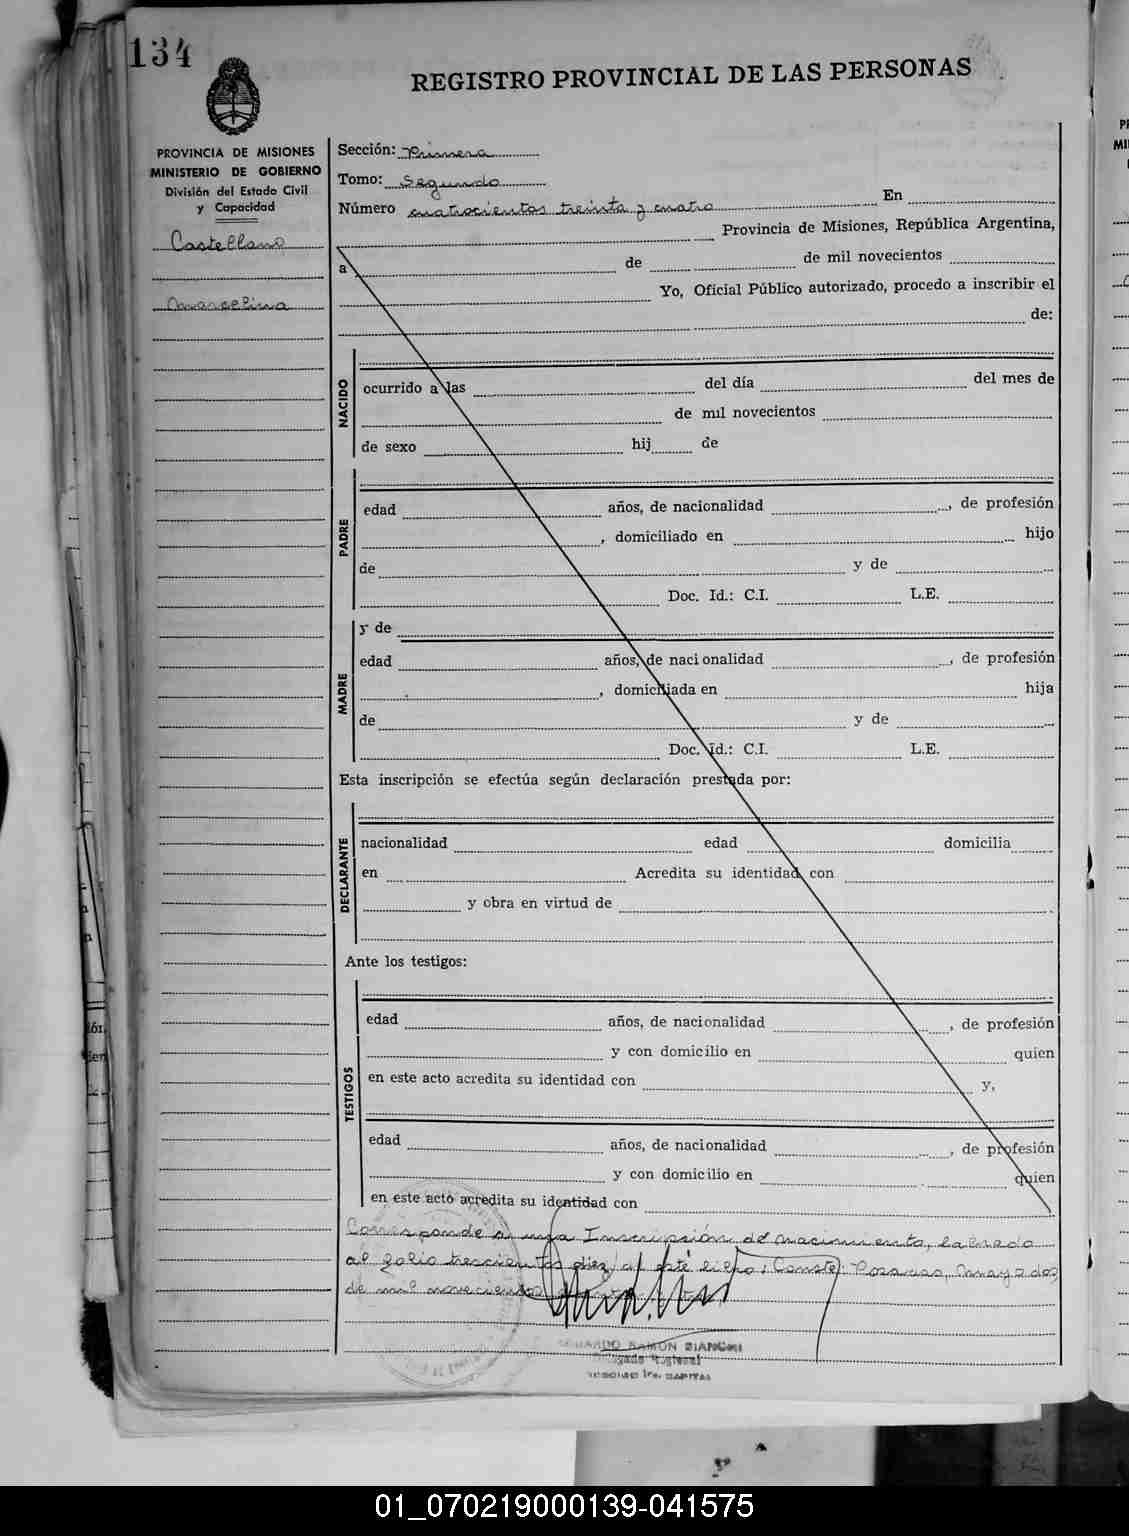 134
REGISTRO PROVINCIAL DE LAS PERSONAS
PROVINCIA DE MISIONES
MINISTERIO DE GOBIERNO
División del Estado Civil
y Capacidad
Castellano
Marcelina
Sección: Primera
Tomo: Segundo
Número cuatrocientos treinta y cuatro En
Provincia de Misiones, República Argentina,
a de de mil novecientos
Yo, Oficial Público autorizado, procedo a inscribir el
de:
NACIDO
ocurrido a las del día del mes de
de mil novecientos
de sexo hij de
PADRE
edad años, de nacionalidad , de profesión
, domiciliado en hijo
de y de
Doc. Id.: C.I. L.E.
MADRE
y de
edad años, de nacionalidad , de profesión
, domiciliada en hija
de y de
Doc. Id.: C.I. L.E.
Esta inscripción se efectúa según declaración prestada por:
DECLARANTE
nacionalidad edad domicilia
en Acredita su identidad con
y obra en virtud de
Ante los testigos:
TESTIGOS
edad años, de nacionalidad , de profesión
y con domicilio en quien
en este acto acredita su identidad con y,
edad años, de nacionalidad , de profesión
y con domicilio en quien
en este acto acredita su identidad con
Corresponde a una Inscripción de nacimiento, labrada
al folio trescientos diez del este libro: Conste: Posadas, mayo dos
de mil novecientos
RAMON BIANCHI
Delegado Regional
CAPITAL
01_070219000139-041575